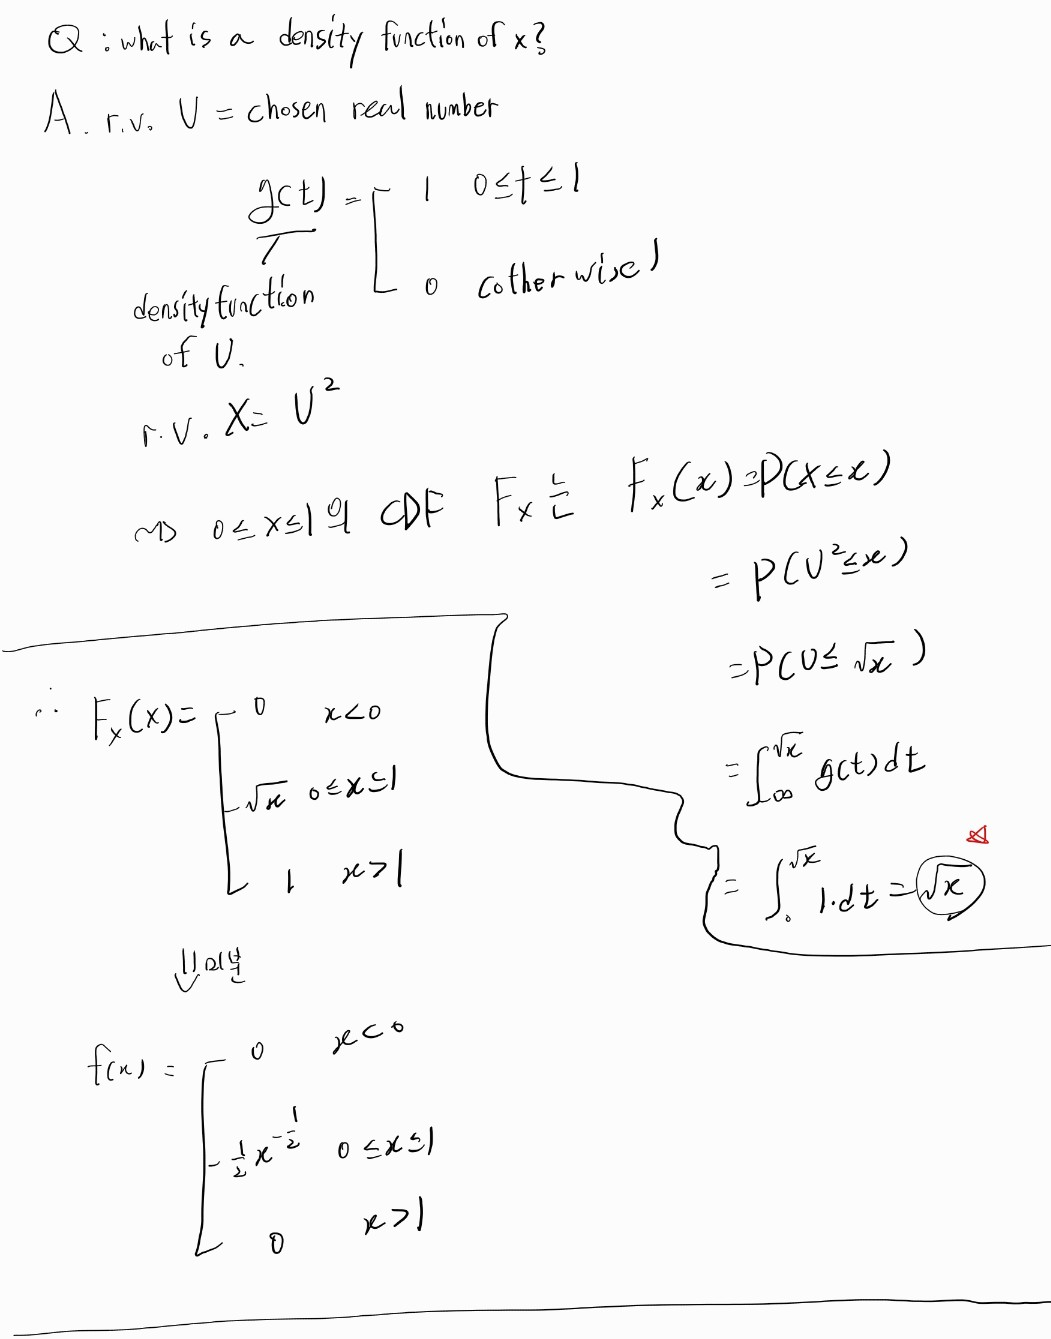 Q : what is a density function of x?
A. r.v. U = chosen real number
g(t) = [ 1 0≤t≤1
0 (otherwise)
density function
of U.
r.v. X = U²
~> 0≤x≤1의 CDF Fₓ는 Fₓ(x) = P(X≤x)
= P(U²≤x)
= P(U≤ √x )
= ∫_∞^√x g(t)dt
= ∫_0^√x 1·dt = √x
∴ Fₓ(x) = [ 0 x<0
√x 0≤x≤1
1 x>1
⇓ 미분
f(x) = [ 0 x<0
½x^-½ 0≤x≤1
0 x>1